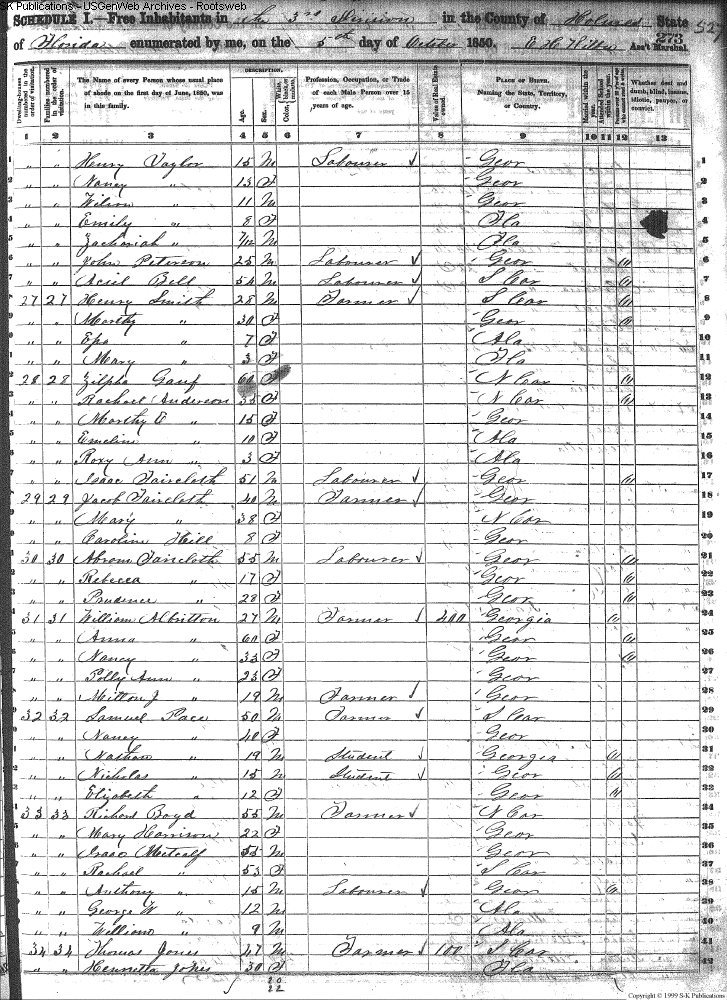 S-K Publications - USGenWeb Archives - Rootsweb
SCHEDULE I.—Free Inhabitants in the 3rd Division in the County of Holmes State 527
of Florida enumerated by me, on the 5th day of October 1850. Ass't Marshal. 273
Dwelling-houses numbered in the order of visitation. Families numbered in the order of visitation. The Name of every Person whose usual place of abode on the first day of June, 1850, was in this family. DESCRIPTION. Age. Sex. White, black, or mulatto. Color. Profession, Occupation, or Trade of each Male Person over 15 years of age. Value of Real Estate owned. PLACE OF BIRTH. Naming the State, Territory, or Country. Married within the year. Attended School within the year. Whether deaf and dumb, blind, insane, idiotic, pauper, or convict.
1 2 3 4 5 6 7 8 9 10 11 12 13
1 " " Henry Taylor 15 M Labourer Geor 1
2 " " Nancy " 13 F Geor 2
3 " " Wilson " 11 M Geor 3
4 " " Emily " 8 F Fla 4
5 " " Zachariah " 7/12 M Fla 5
6 " " John Peterson 25 M Labourer Geor 6
7 " " Bell 54 M Labourer S Car 7
8 27 27 Henry Smith 28 M Farmer S Car 8
9 " " Marthy " 30 F Geor 9
10 " " " 7 F Ala 10
11 " " Mary " 3 F Fla 11
12 28 28 Zilpha 60 F N Car 12
13 " " Rachael Anderson 35 F N Car 13
14 " " Marthy E " 15 F Geor 14
15 " " Emeline " 10 F Ala 15
16 " " Roxy Ann " 3 F Ala 16
17 " " Isaac Faircloth 51 M Labourer Geor 17
18 29 29 Jacob Faircloth 40 M Farmer Geor 18
19 " " Mary " 38 F N Car 19
20 " " Caroline Hill 8 F Geor 20
21 30 30 Abram Faircloth 55 M Labourer Geor 21
22 " " Rebecca " 17 F Geor 22
23 " " Prudence " 28 F Geor 23
24 31 31 William Albritton 27 M Farmer 400 Georgia 24
25 " " Anna " 60 F Geor 25
26 " " Nancy " 33 F Geor 26
27 " " Polly Ann " 23 F Geor 27
28 " " Milton J " 19 M Farmer Geor 28
29 32 32 Samuel Pace 50 M Farmer S Car 29
30 " " Nancy " 40 F Geor 30
31 " " Nathan " 19 M Student Georgia 31
32 " " Nicholas " 15 M Student Geor 32
33 " " Elizabeth " 12 F Geor 33
34 33 33 Richard Boyd 55 M Farmer N Car 34
35 " " Mary Harrison 22 F Geor 35
36 " " Isaac Metcalf 55 M Geor 36
37 " " Rachael " 53 F S Car 37
38 " " Anthony " 15 M Labourer Geor 38
39 " " George W " 12 M Ala 39
40 " " William " 9 M Ala 40
41 34 34 Thomas Jones 47 M Farmer 100 S Car 41
42 " " Henrietta Jones 30 F Fla 42
20
22
Copyright © 1999 S-K Publications